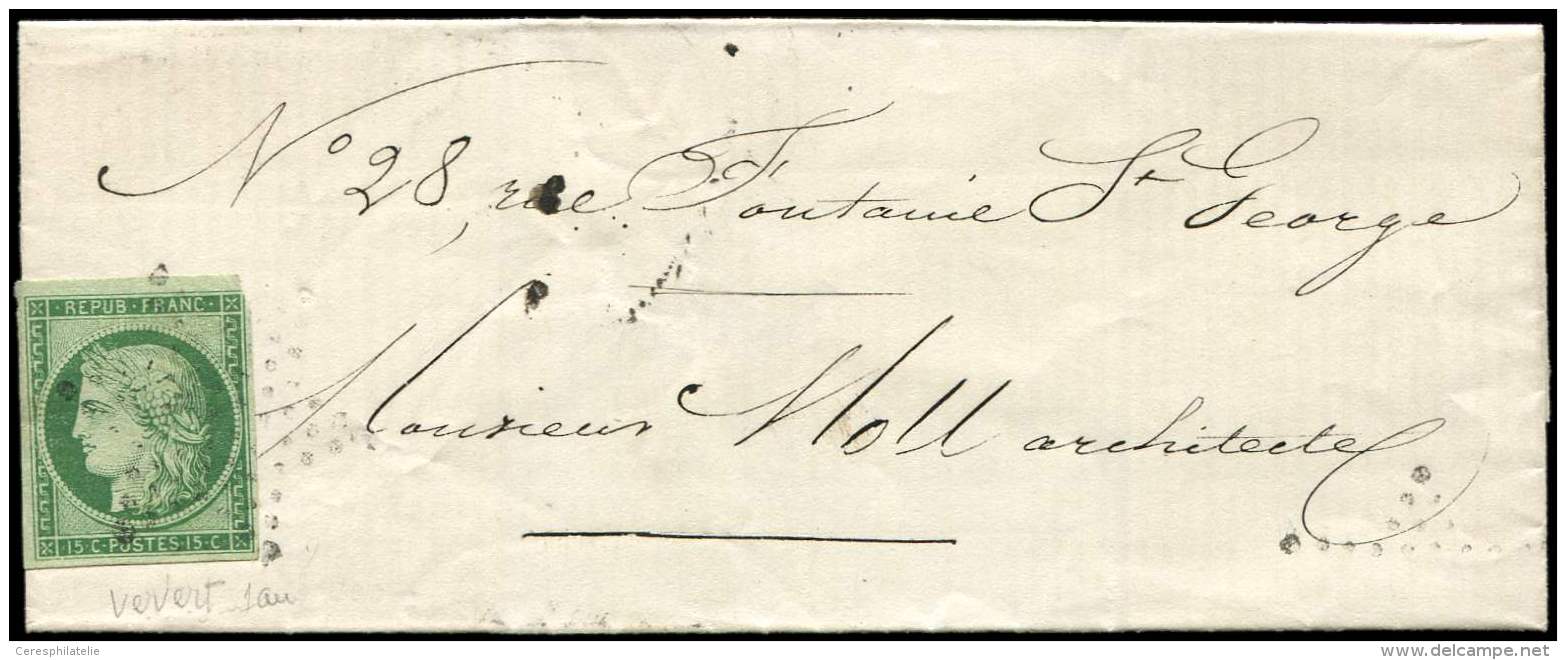 N° 28, rue Fontaine St George
REPUB·FRANC·
Monsieur Moll architecte
15·C·POSTES·15·C
Ceresphilatelie
© www.delcampe.net